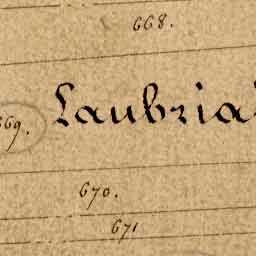 668.
669.
Laubria
670.
671